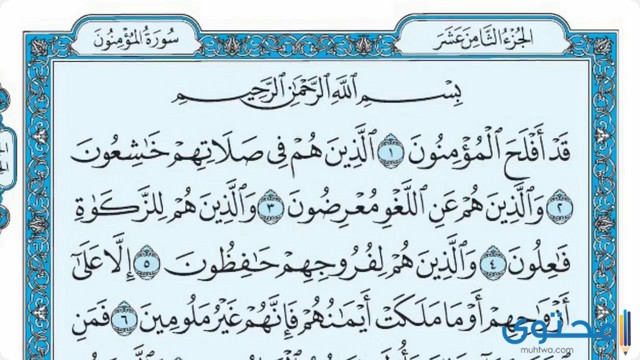 الجُزْءُ الثَّامِنَ عَشَرَ
سُورَةُ المُؤْمِنُونَ
بِسْمِ اللَّهِ الرَّحْمَٰنِ الرَّحِيمِ
قَدْ أَفْلَحَ الْمُؤْمِنُونَ ١ الَّذِينَ هُمْ فِي صَلَاتِهِمْ خَاشِعُونَ
٢ وَالَّذِينَ هُمْ عَنِ اللَّغْوِ مُعْرِضُونَ ٣ وَالَّذِينَ هُمْ لِلزَّكَوٰةِ
فَاعِلُونَ ٤ وَالَّذِينَ هُمْ لِفُرُوجِهِمْ حَافِظُونَ ٥ إِلَّا عَلَىٰ
أَزْوَاجِهِمْ أَوْ مَا مَلَكَتْ أَيْمَانُهُمْ فَإِنَّهُمْ غَيْرُ مَلُومِينَ ٦ فَمَنِ
محتوى
muhtwa.com